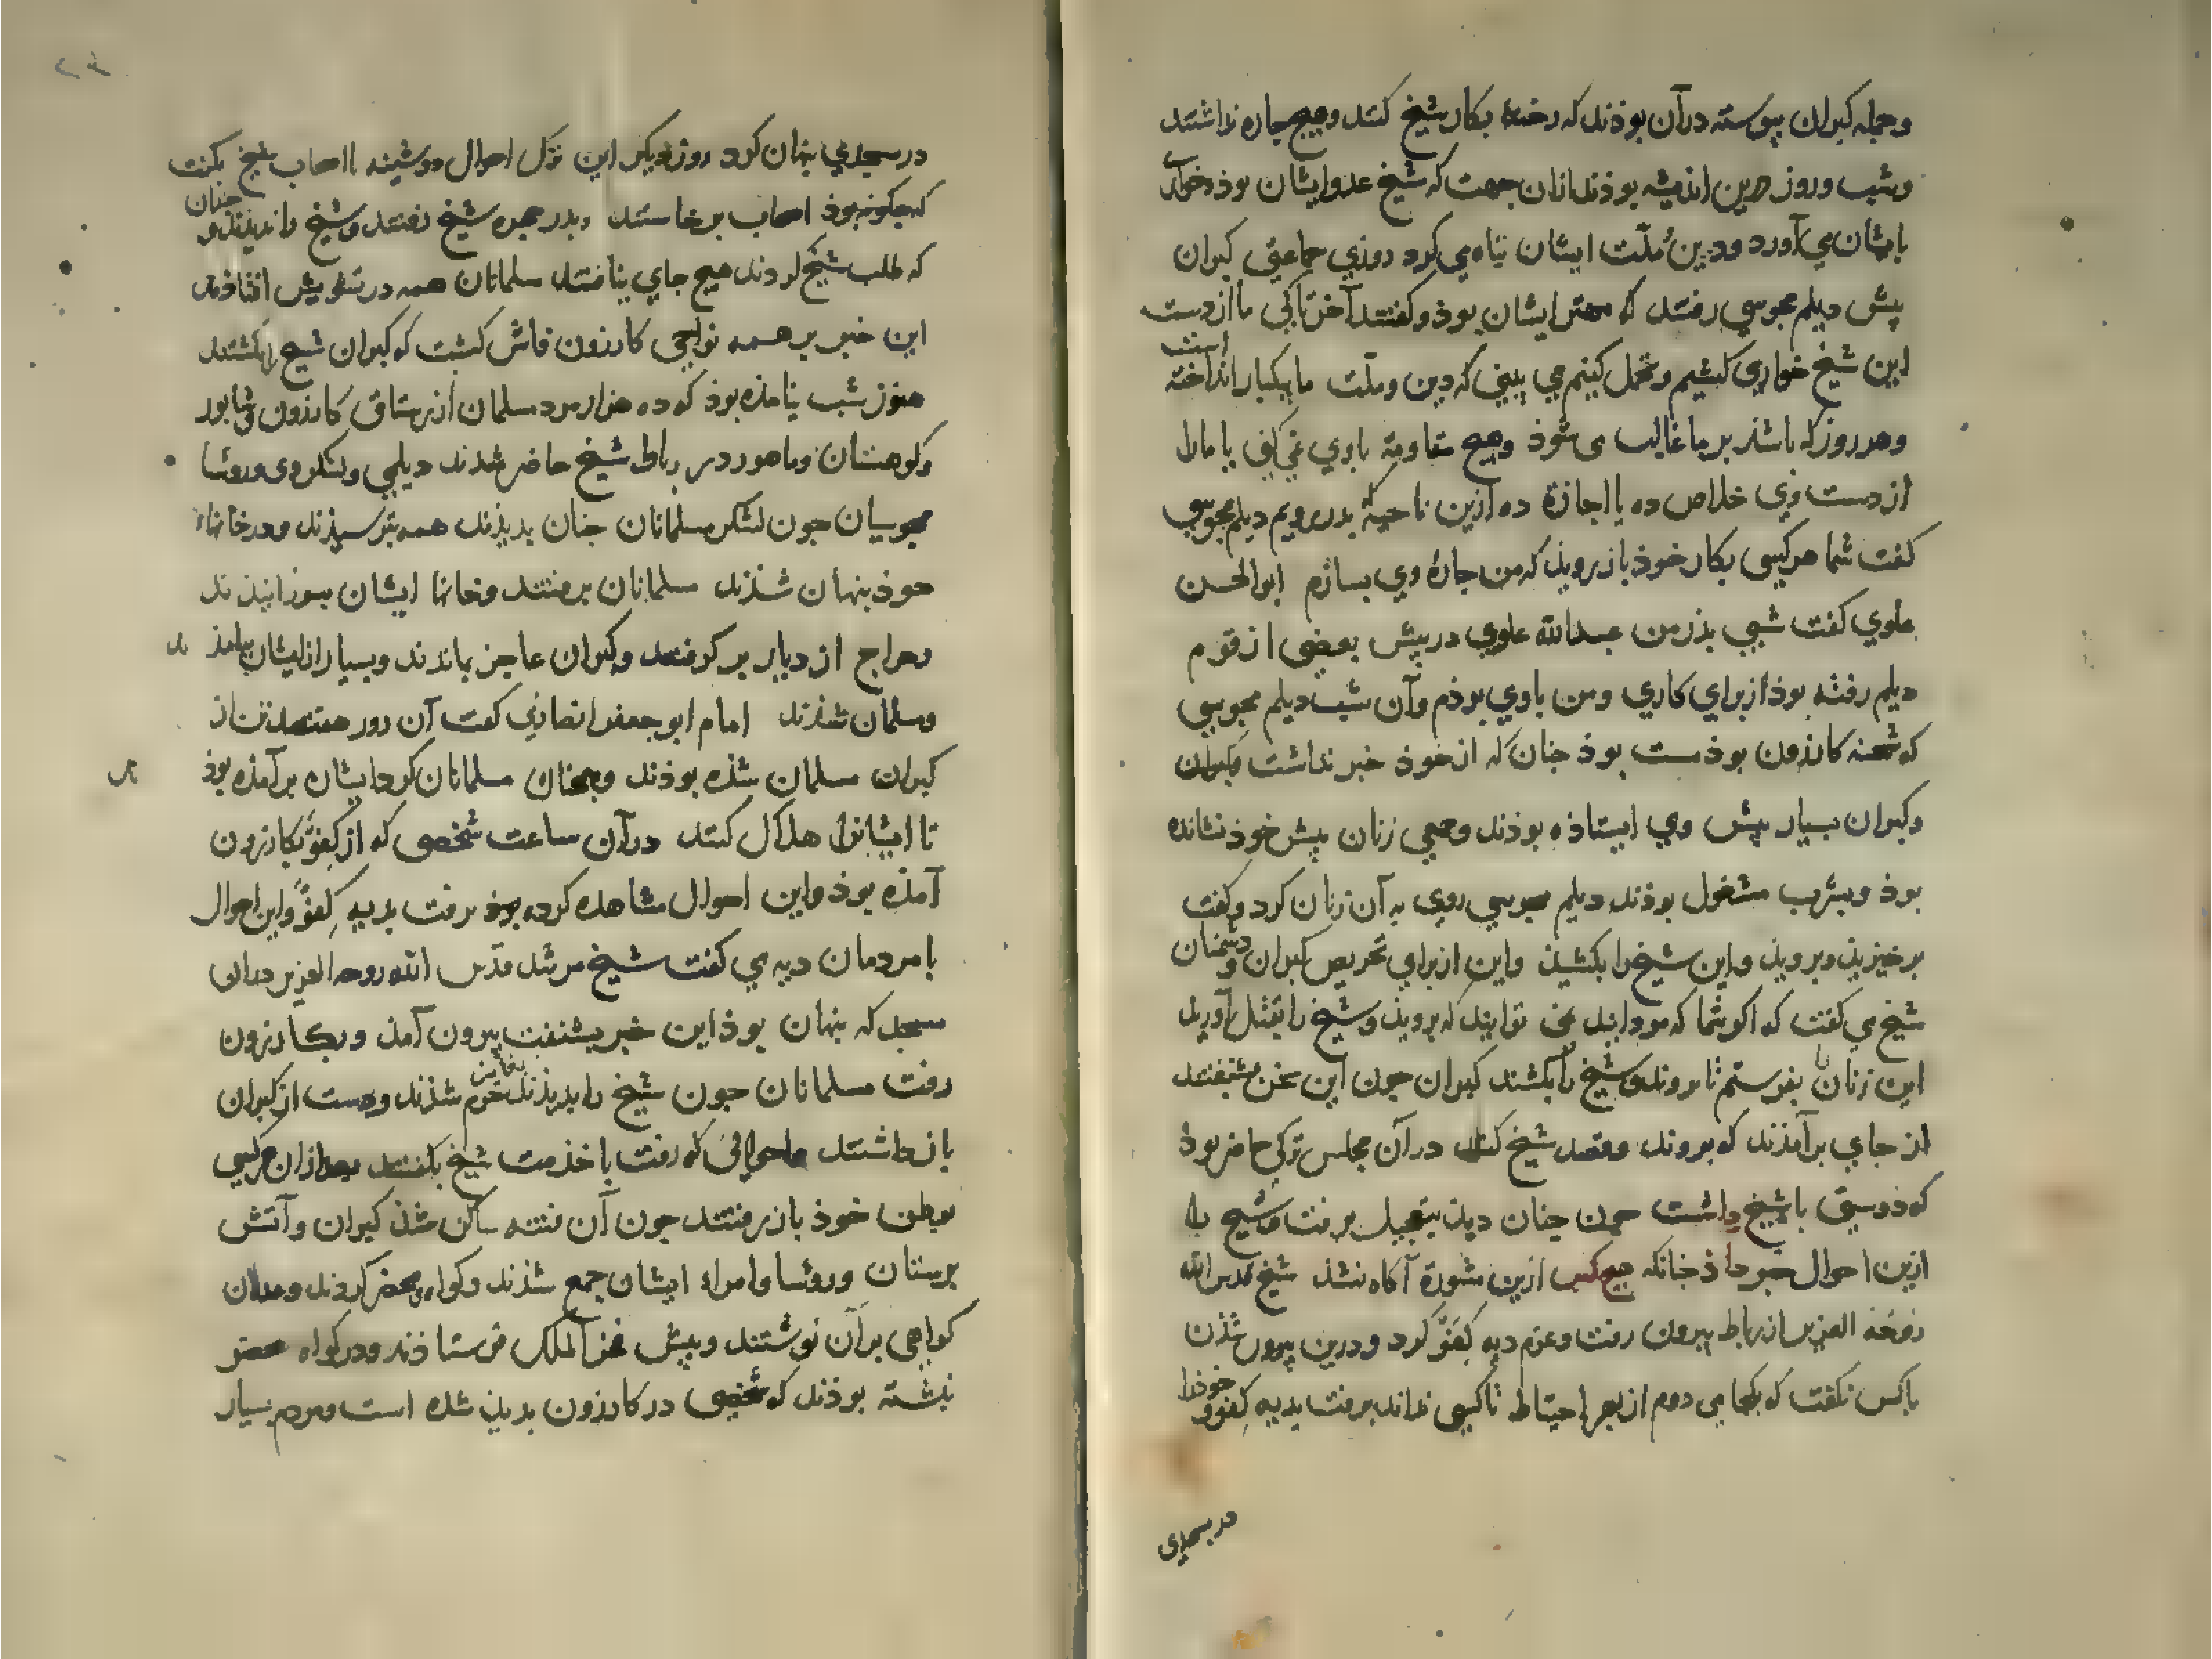 وجمله کبران پیوسته درآن بوذند که رخنۀ بکار شیخ کنند وهیج جاره نداشتند
وشب وروز درین اندیشه بوذند ازان جهت که شیخ عدو ایشان بوذ وخواری
بایشان می آورد ودین وملّت ایشان تباه می کرد روزی جماعتی کبران
پیش دیلم مجوسی رفتند که مهتر ایشان بوذ وکفتند آخر تا کی ما از دست
این شیخ خواری کشیم وتحمل کنیم می بینی که دین وملّت ما بیکبار انداخته است
وهر روز که باشذ بر ما غالب می شوذ وهیج مقاومة باوی نمی کنی یا ما را
از دست وی خلاص ده یا اجازة ده تا ازین ناحیة بدر رویم دیلم مجوسی
کفت شما هر کسی بکار خوذ باز رویذ که من جارۀ وی بسازم ابوالحسن
علوی کفت شبی بذر من عبدالله علوی در پیش بعضی از قوم
دیلم رفته بوذ از برای کاری ومن باوی بوذم وآن شب دیلم مجوسی
که شحنه کازرون بوذ مست بوذ جنان که از خوذ خبر نداشت
وکبران بسیار پیش وی ایستاذه بوذند وجمعی زنان پیش خوذ نشانده
بوذ وبشرب مشغول بوذند دیلم مجوسی روی به آن زنان کرد وکفت
برخیزیذ وبرویذ واین شیخ را بکشیذ واین از برای تحریص کبران ودشمنان
شیخ می کفت که اکر شما که مردانید نمی توانید که برویذ وشیخ را بقتل آورید
این زنان را بفرستم تا بروند وشیخ را بکشند کبران جون این سخن بشنفتند
از جای برآمذند که بروند وقصد شیخ کنند درآن مجلس ترکی حاضر بوذ
که دوستی با شیخ داشت جون جنان دید بتعجیل برفت وشیخ را
ازین احوال خبر داذ جنانکه هیج کس ازین مشورة آکاه نشذ شیخ قدس الله
روحه العزیز از رباط بیرون رفت وعزم دیه کفو کرد ودرین بیرون شذن
با کس نکفت که کجا می روم از بهر احتیاط تا کسی نداند برفت بدیه کفو وخوذ را
در مسجدی
در مسجدی بنهان کرد روز دیکر این ترک احوال دوشینه با اصحاب شیخ بکفت
که جکونه بوذ اصحاب برخاستند وبدر حجره شیخ رفتند وشیخ را ندیذند جنان
که طلب شیخ کردند هیج جای نیافتند مسلمانان همه در تشویش افتاذند
این خبر بر همه نواحی کازرون فاش کشت که کبران شیخ را بکشتند
هنوز شب نیامذه بوذ که ده هزار مرد مسلمان از رستاق کازرون وشابور
وکوهستان وماهور در رباط شیخ حاضر شدند دیلمی ولشکر وی ورؤسا
مجوسیان جون لشکر مسلمانان جنان بدیذند همه بترسیذند ودر خانهاء
خوذ بنهان شذند مسلمانان برفتند وخانها ایشان بسوزانیذند
وخراج از دیار برکرفتند وکبران عاجز بماندند وبسیار از ایشان بیامذند
ومسلمان شذند امام ابوجعفر انصاری کفت آن روز هفتصد تن از
کبران مسلمان شذه بوذند وهمجنان مسلمانان کرد ایشان برآمذه بوذ
تا ایشانرا هلاک کنند درآن ساعت شخصی که از کفو بکازرون
آمذه بوذ واین احوال مشاهده کرده بوذ برفت بدیه کفو واین احوال
با مردمان دیه می کفت شیخ مرشد قدّس الله روحه العزیز درآن
مسجد که بنهان بوذ این خبر بشنفت بیرون آمذ وبکازرون
رفت مسلمانان جون شیخ را بدیذند بغایت خرم شذند ودست از کبران
باز داشتند وماجرائی که رفت با خذمت شیخ بکفتند بعد ازان هر کسی
بوطن خوذ باز رفتند جون آن فتنه ساکن شذ کبران وآتش
برستان ورؤسا وامراء ایشان جمع شذند وکواه ومحضر کردند وبدان
کواهی برآن نوشتند وبپیش فخر الملک فرستاذند ودر کواه محضر
نبشته بوذند که شخصی در کازرون بدید شده است ومردم بسیار